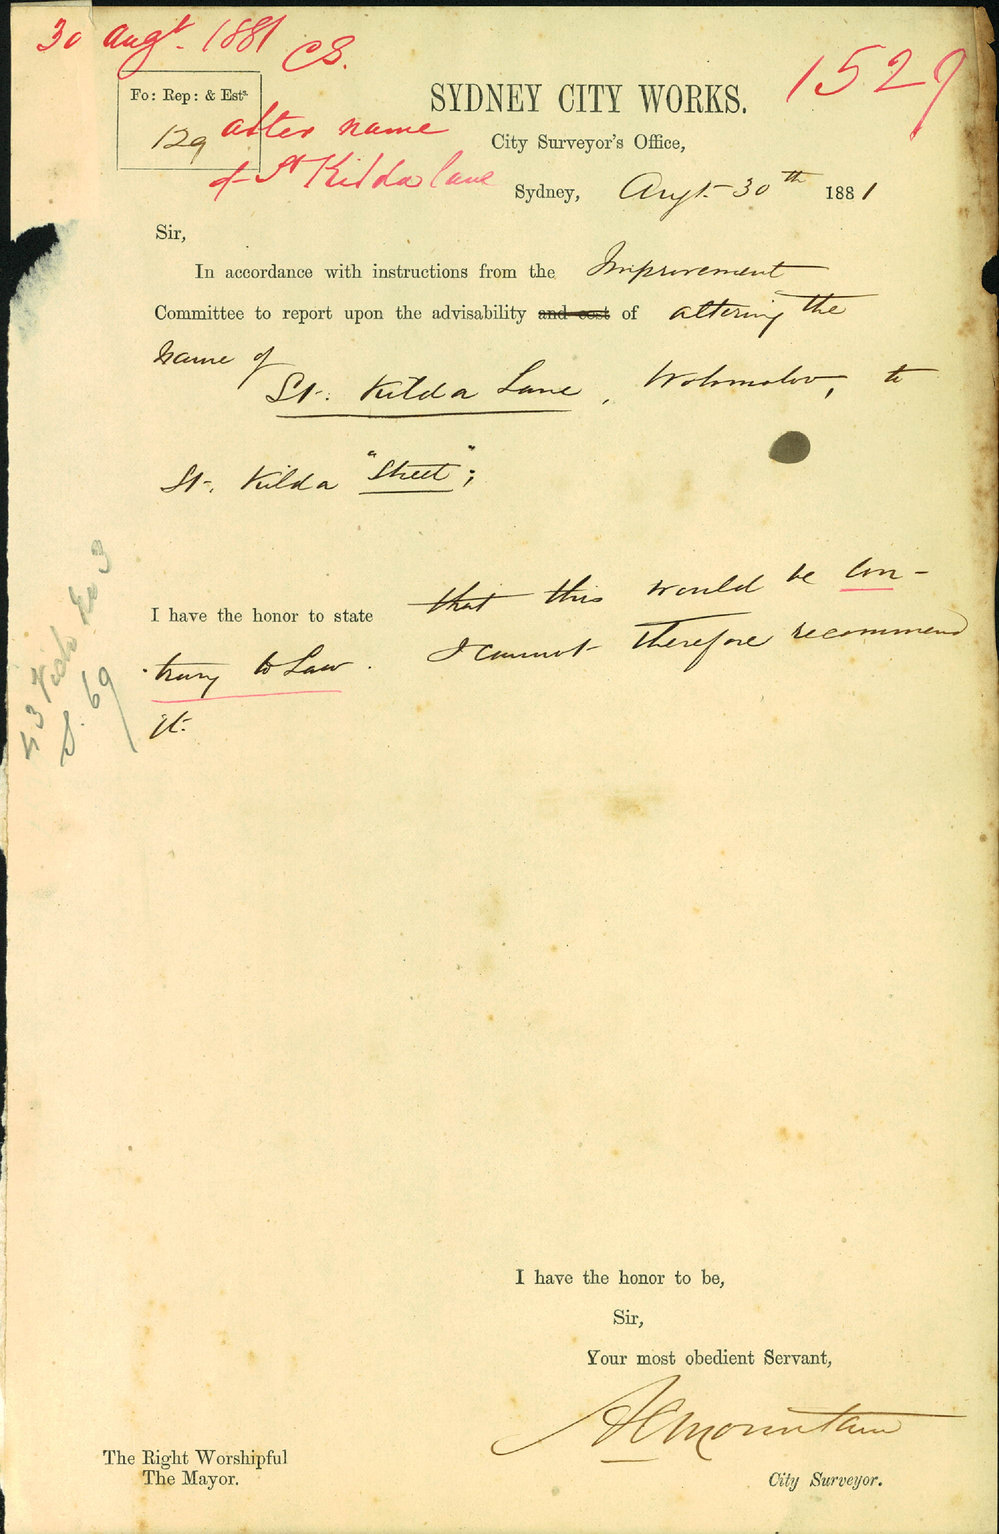 30 Augt. 1881 CS.
1529
Fo: Rep: & Ests.
129
alter name
of St Kilda lane
SYDNEY CITY WORKS.
City Surveyor's Office,
Sydney, Augt. 30th 1881
Sir,
In accordance with instructions from the Improvement
Committee to report upon the advisability and cost of altering the
name of
St. Kilda Lane, Wolomoloo, to
St. Kilda "Street";
I have the honor to state that this would be con-
trary to Law. I cannot therefore recommend
it.
43 Vict No 3
S. 69
I have the honor to be,
Sir,
Your most obedient Servant,
A C Mountain
City Surveyor.
The Right Worshipful
The Mayor.